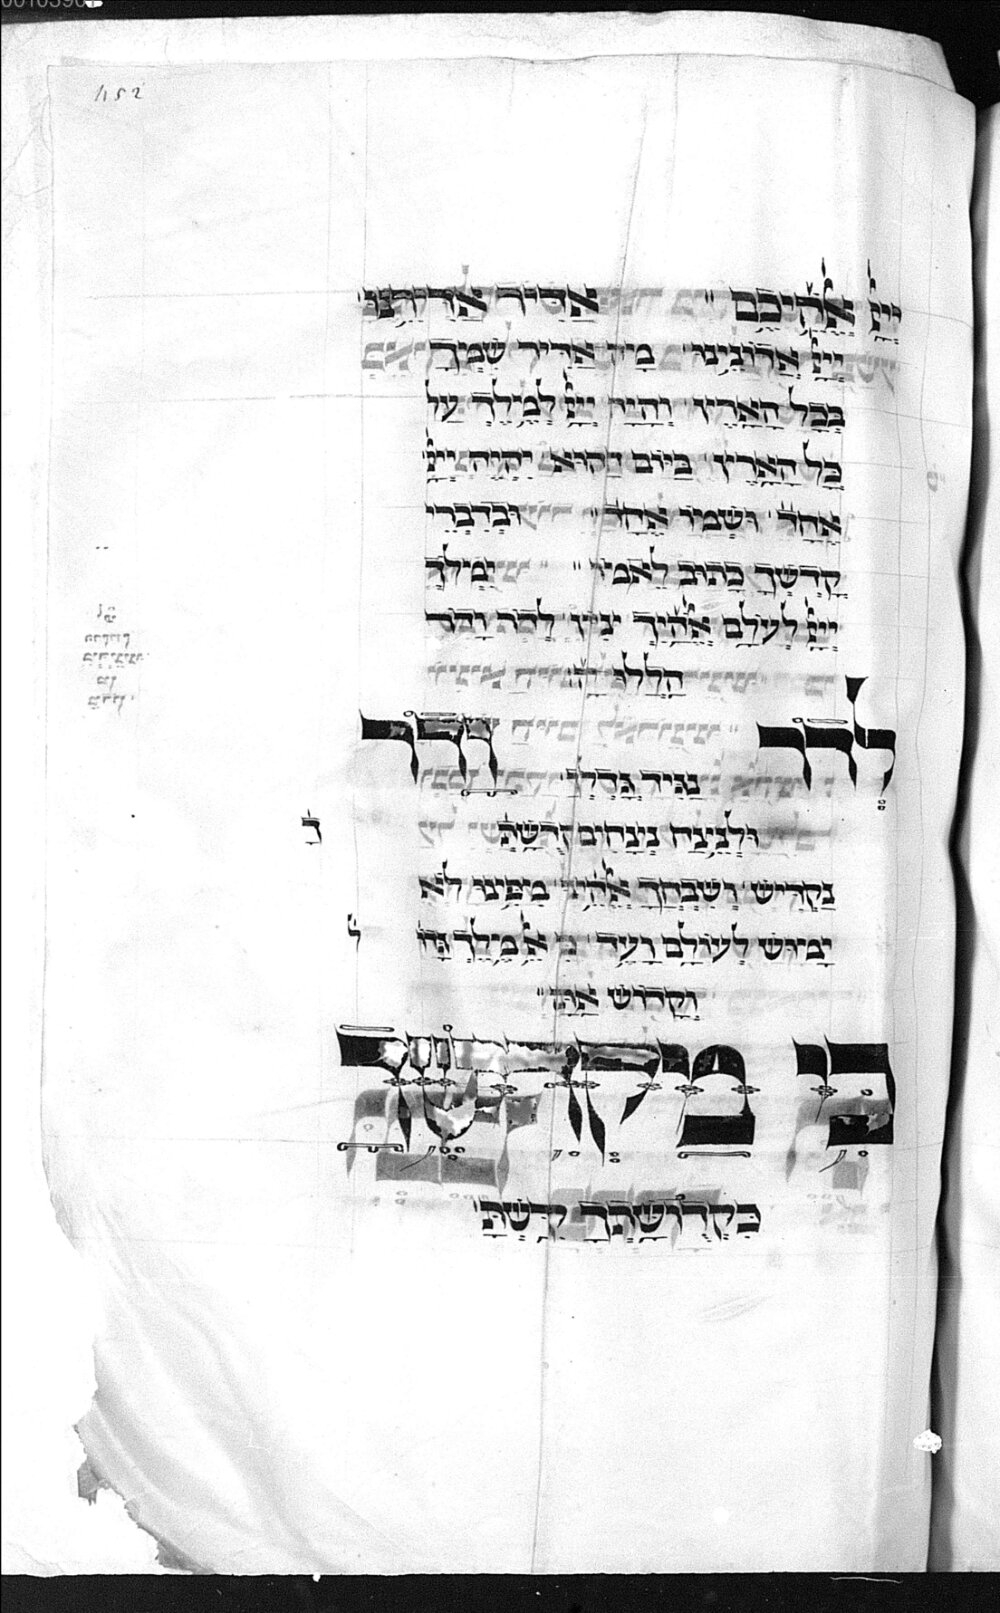 152
ייי אלהיכם׃ אדיר אדירנו
ייי אדונינו מה אדיר שמך
בכל הארץ והיה ייי למלך על
כל הארץ ביום ההוא יהיה ייי
אחד ושמו אחד׃ ובדברי
קדשך כתוב לאמר׃ ימלך
ייי לעולם אלהיך ציון לדר ודר
הללויה׃
לדר ודר
נגיד גדלך
ולנצח נצחים קדשתך
נקדיש ושבחך אלהינו מפינו לא
ימוש לעולם ועד כי אל מלך גדול
וקדוש אתה׃
כי מקדישך
כקדושתך קדשת